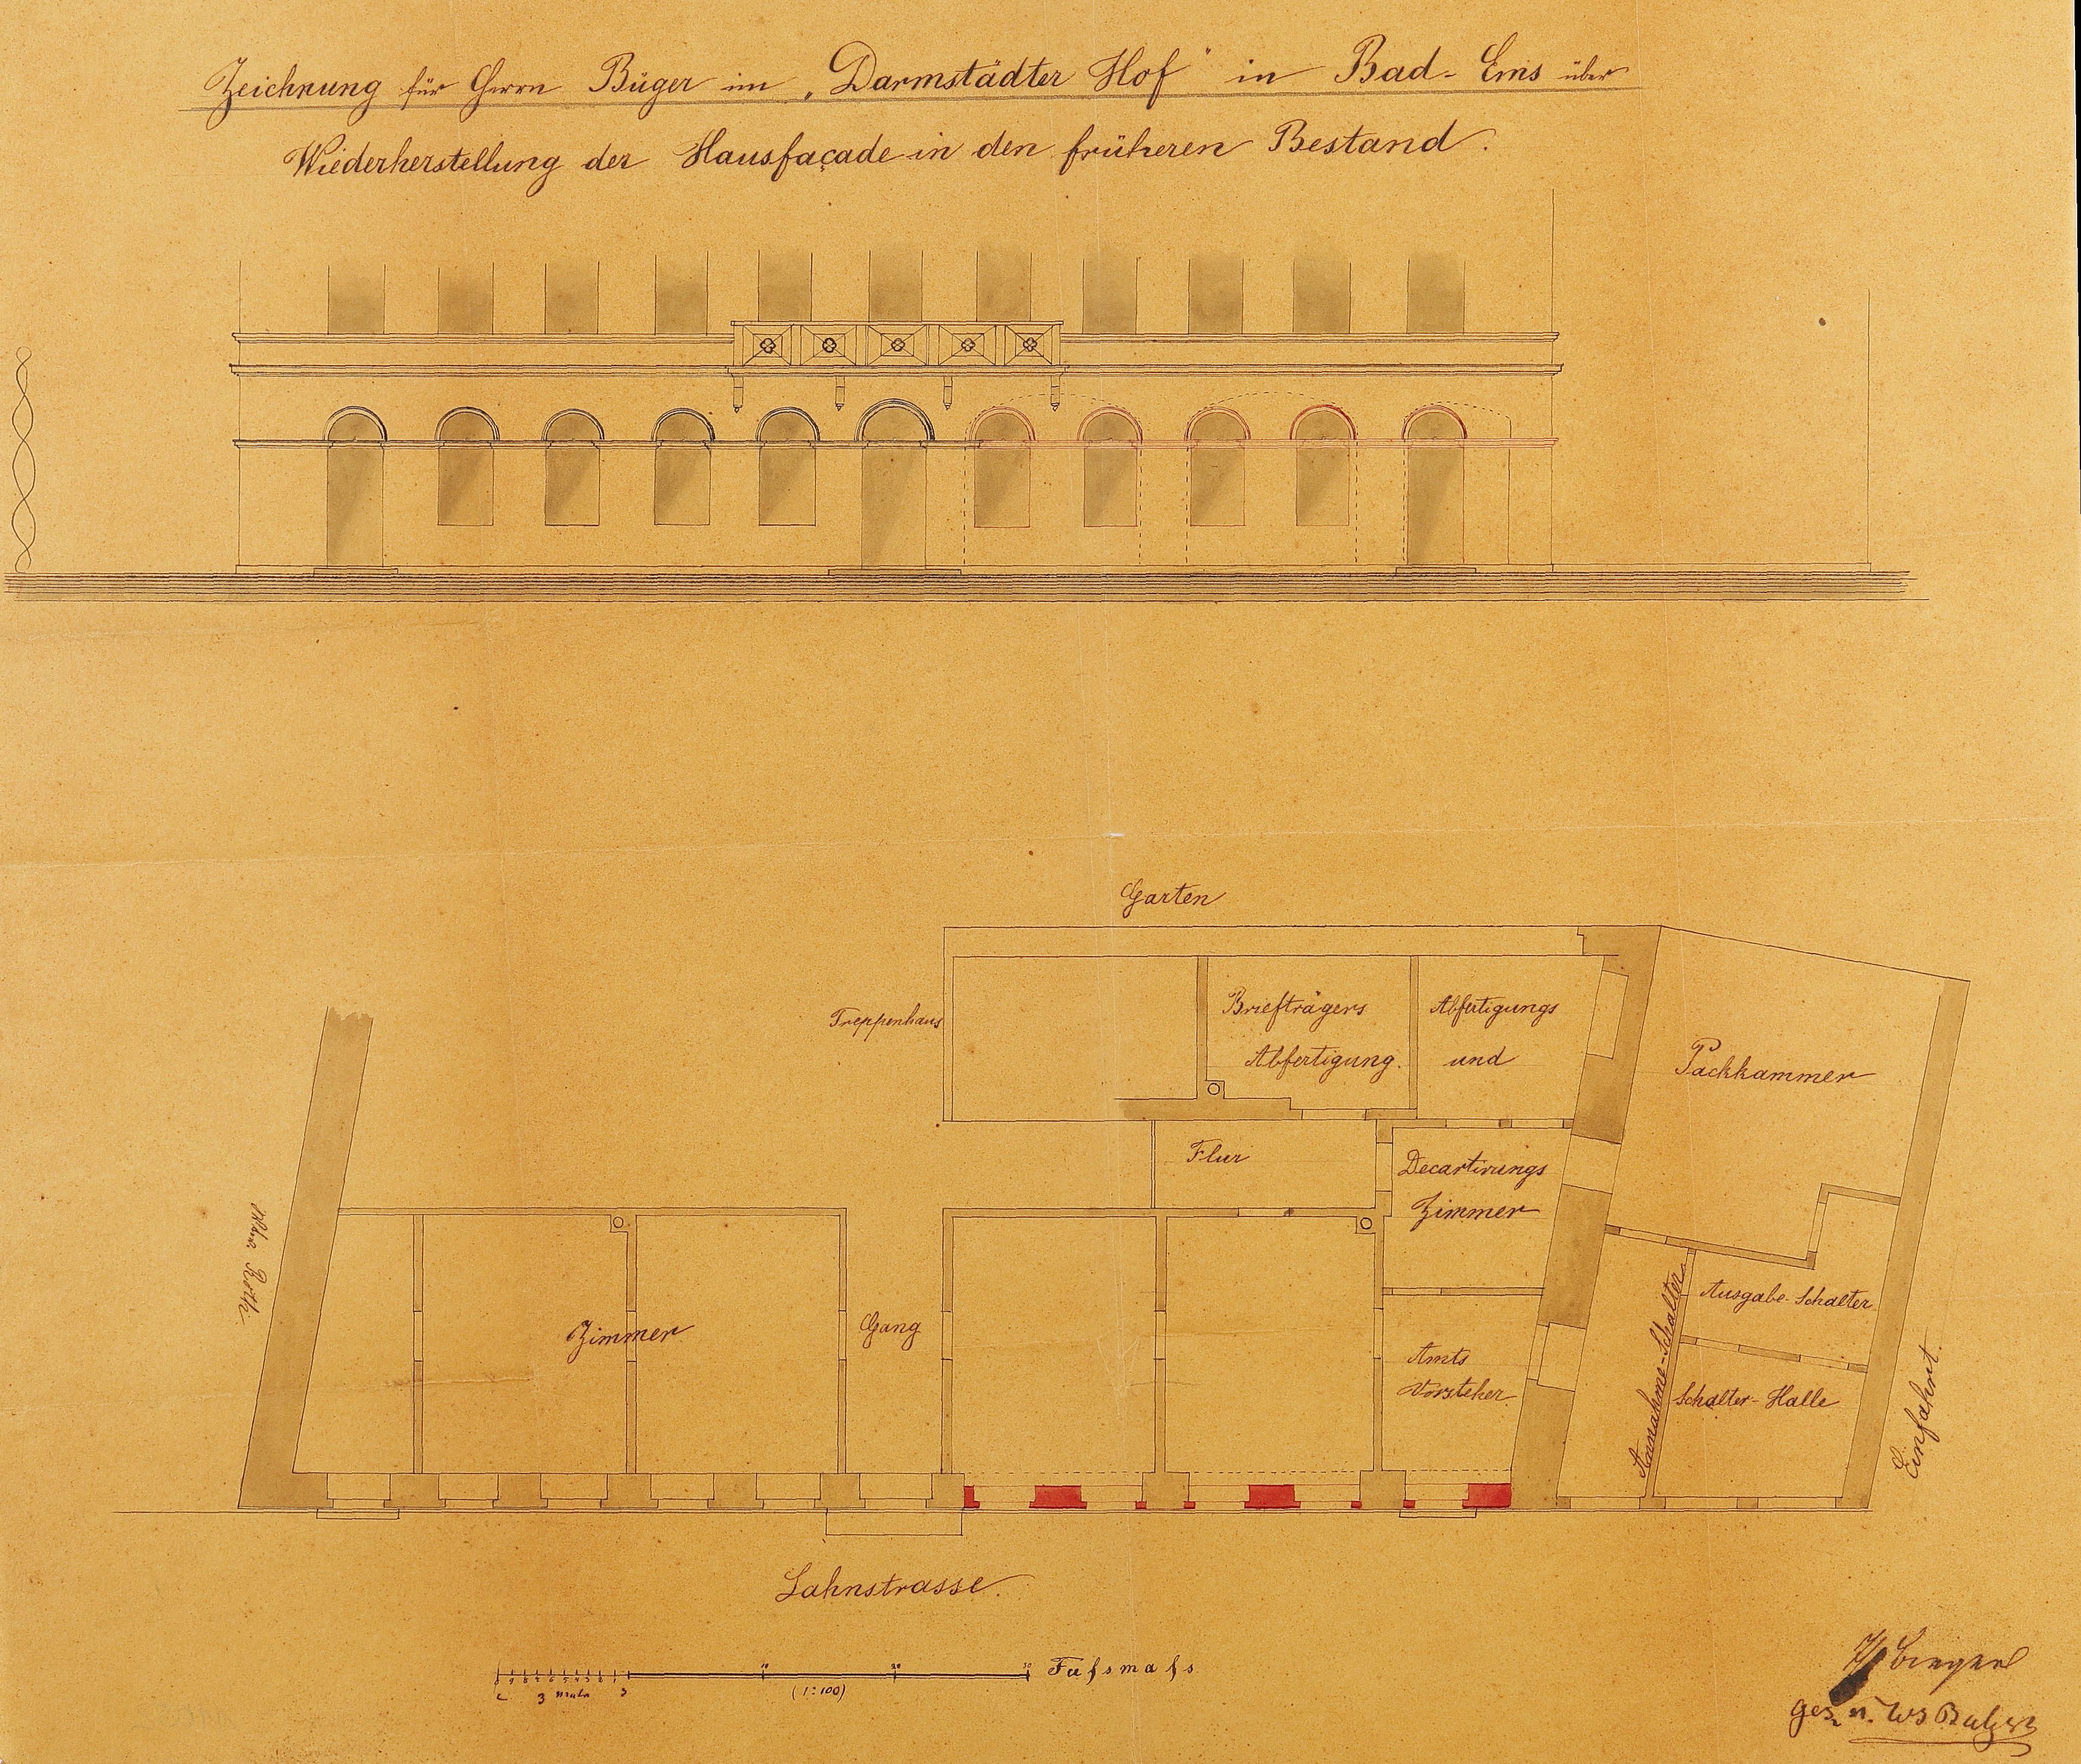 Zeichnung für Herrn Büger im „Darmstädter Hof" in Bad-Ems über
Wiederherstellung der Hausfaçade in den früheren Bestand.
Garten
Treppenhaus
Briefträgers
Abfertigung.
Abfertigungs
und
Packkammer
Flur
Decartirungs
Zimmer
Roth.
Zimmer
Gang
Amts
Vorsteher.
Annahme-Schalter
Ausgabe-Schalter
Schalter-Halle
Einfahrt.
Lahnstrasse.
10 20 30 Fuſsmaſs
(1:100)